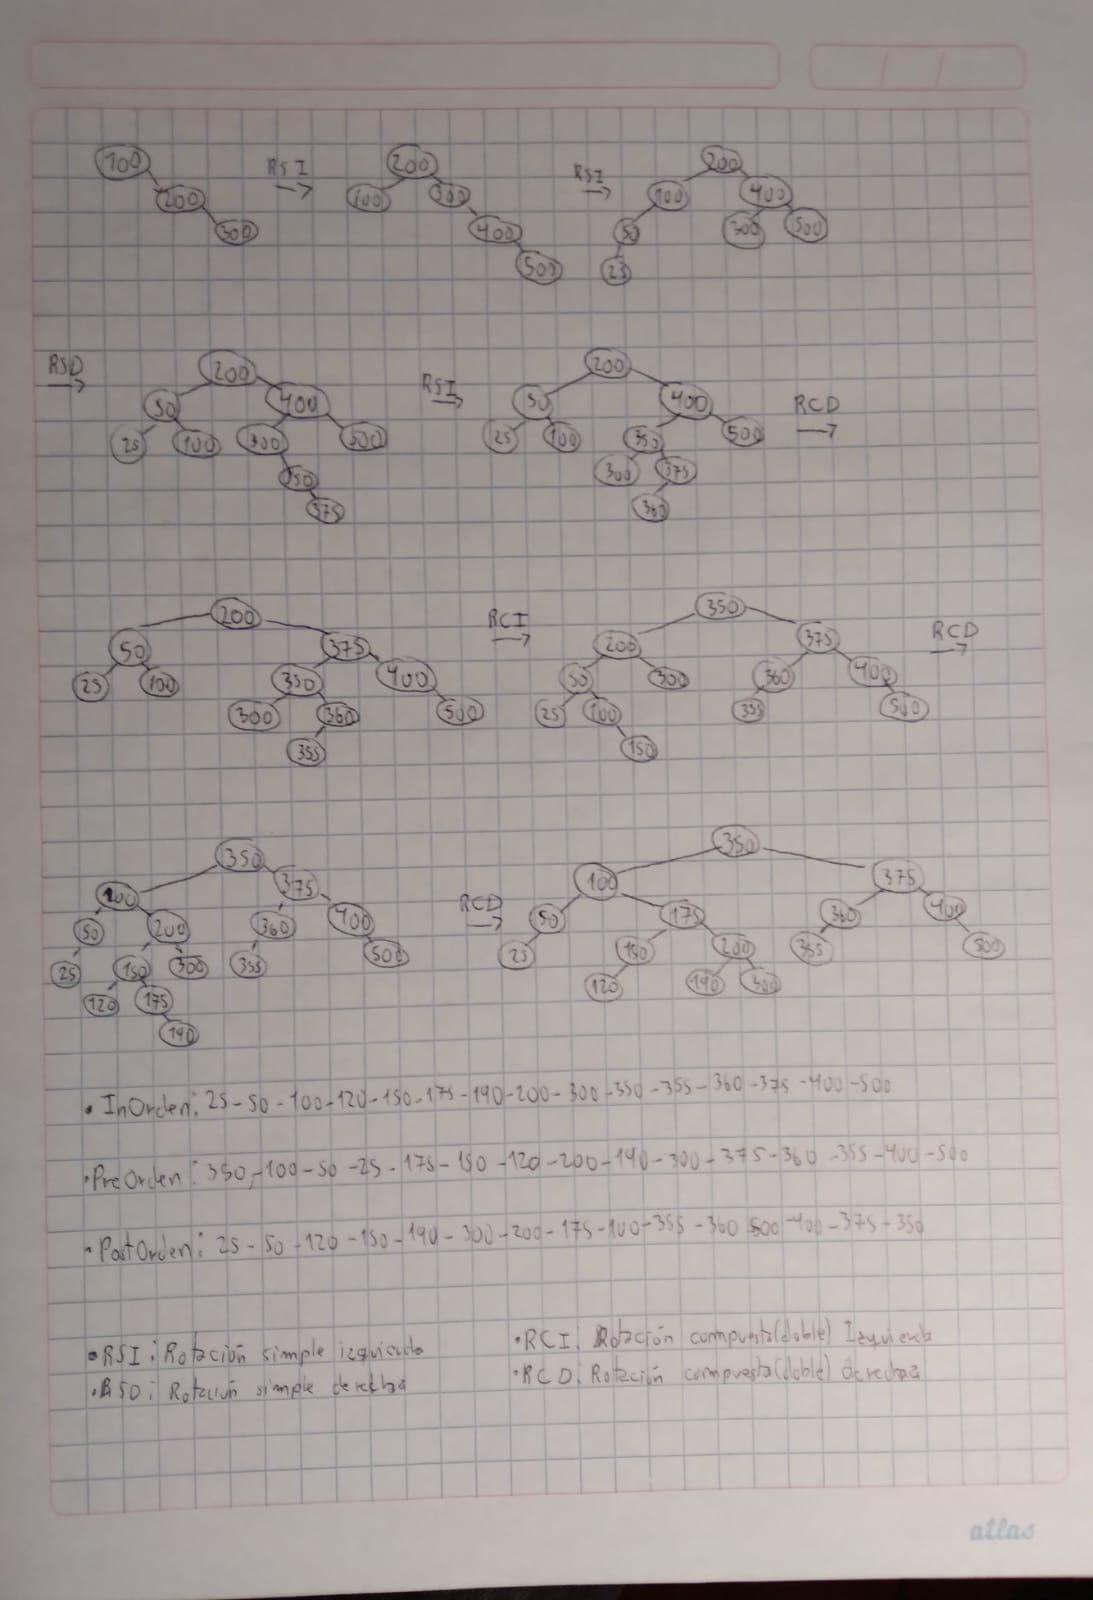 100
200
300
RSI
200
100 300
400
500
RSI
200
100 400
50 300 500
25
RSD
200
50 400
25 100 300 500
350
375
RSI
200
50 400
25 100 350 500
300 375
360
RCD
200
50 375
25 100 350 400
300 360 500
355
RCI
350
200 375
50 300 360 400
25 100 355 500
150
RCD
350
100 375
50 200 360 400
25 150 300 355 500
120 175
190
RCD
350
100 375
50 175 360 400
25 150 200 355 500
120 190 300
• InOrden: 25 - 50 - 100 - 120 - 150 - 175 - 190 - 200 - 300 - 350 - 355 - 360 - 375 - 400 - 500
• PreOrden: 350 - 100 - 50 - 25 - 175 - 150 - 120 - 200 - 190 - 300 - 375 - 360 - 355 - 400 - 500
• PostOrden: 25 - 50 - 120 - 150 - 190 - 300 - 200 - 175 - 100 - 355 - 360 500 - 400 - 375 - 350
• RSI: Rotación simple izquierda
• RSD: Rotación simple derecha
• RCI: Rotación compuesta(doble) Izquierda
• RCD: Rotación compuesta(doble) derecha
atlas